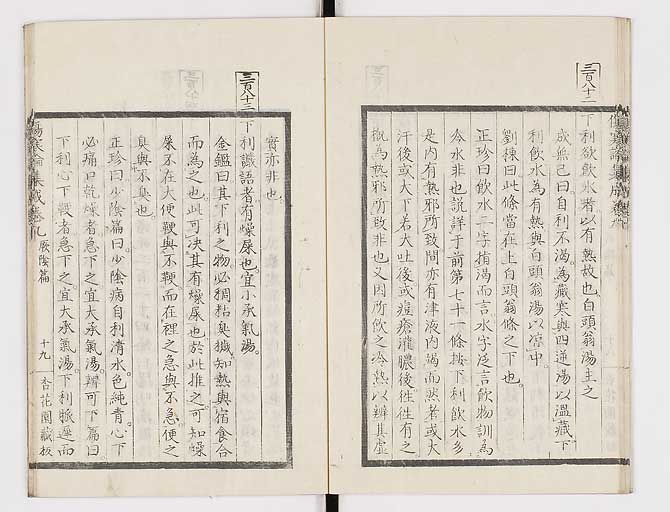 三百八十二
下利欲飲水者以有熱故也白頭翁湯主之
成無己曰自利不渴為藏寒與四逆湯以溫藏下
利飲水為有熱與白頭翁湯以凉中。
劉棟曰此條當在上白頭翁條之下也。
正珍曰飲水二字指渴而言水字泛言飲物訓為
冷水非也説詳于前第七十一條按下利飲水多
是内有熱邪所致間亦有津液内竭而然者或大
汗後或大下若大吐後或痘瘡灌膿後往往有之
概為熱邪所致非也又因所飲之冷熱以辨其虚
實亦非也
三百八十三
下利譫語者有燥屎也宜小承氣湯。
金鑑曰其下利之物必稠黏臭穢知熱與宿食合
而為之也此可決其有燥屎也於此推之可知燥
屎不在大便鞕與不鞕而在裡之急與不急便之
臭與不臭也
正珍曰少陰篇曰少陰病自利清水色純青心下
必痛口乾燥者急下之宜大承氣湯辨可下篇曰
下利心下鞕者急下之宜大承氣湯下利脈遲而
傷寒論集成卷九 厥陰篇 十九 杏花園藏板